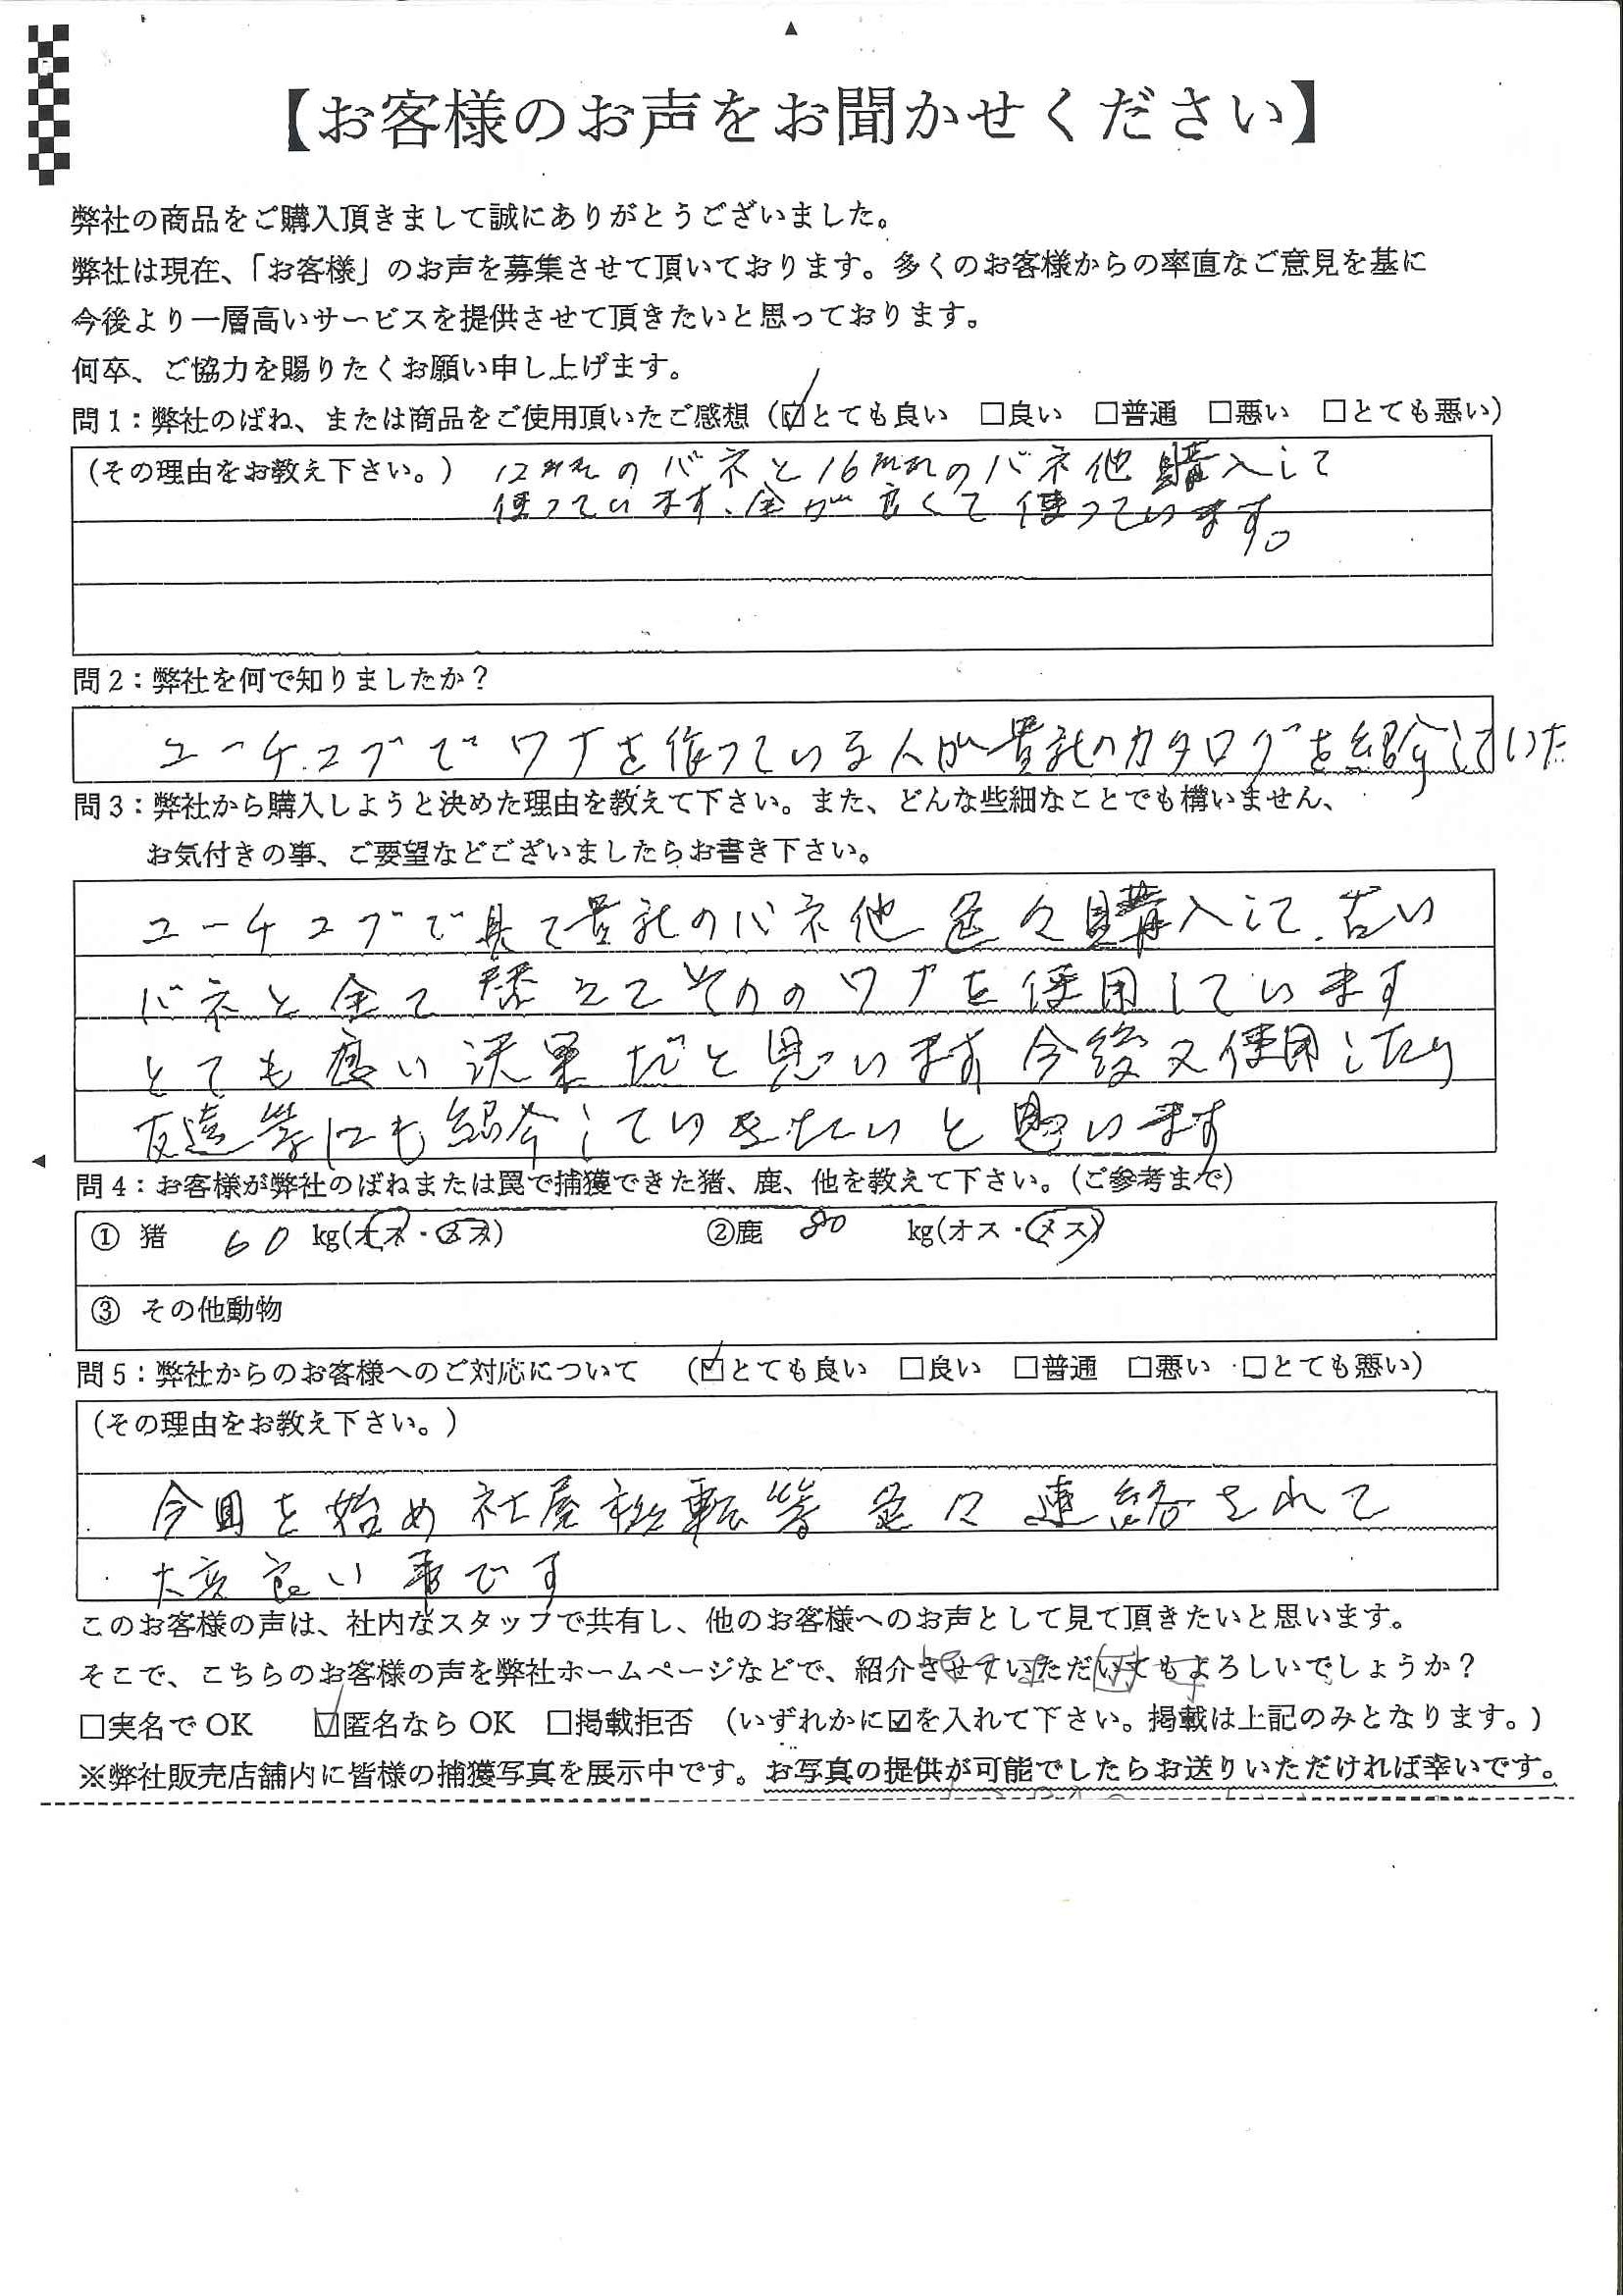 【お客様のお声をお聞かせください】
弊社の商品をご購入頂きまして誠にありがとうございました。
弊社は現在、「お客様」のお声を募集させて頂いております。多くのお客様からの率直なご意見を基に
今後より一層高いサービスを提供させて頂きたいと思っております。
何卒、ご協力を賜りたくお願い申し上げます。
問1：弊社のばね、または商品をご使用頂いたご感想（☑とても良い　□良い　□普通　□悪い　□とても悪い）
（その理由をお教え下さい。） 12mmのバネと16mmのバネ他購入して
使っています、全が良くて使っています。
問2：弊社を何で知りましたか？
ユーチュブでワナを作っている人が貴社のカタログを紹介していた
問3：弊社から購入しようと決めた理由を教えて下さい。また、どんな些細なことでも構いません、
お気付きの事、ご要望などございましたらお書き下さい。
ユーチュブで見て貴社のバネ他色々購入して、古い
バネと全て替えてそののワナを使用しています
とても良い決果だと思います 今後又使用したり
友達等にも紹介していきたいと思います
問4：お客様が弊社のばねまたは罠で捕獲できた猪、鹿、他を教えて下さい。（ご参考まで）
① 猪　60 kg(オス・メス)　②鹿　80　kg(オス・メス)
③ その他動物
問5：弊社からのお客様へのご対応について　（☑とても良い　□良い　□普通　□悪い　□とても悪い）
（その理由をお教え下さい。）
今回を始め社屋移転等色々連絡されて
大変良い事です
このお客様の声は、社内なスタッフで共有し、他のお客様へのお声として見て頂きたいと思います。
そこで、こちらのお客様の声を弊社ホームページなどで、紹介させていただいてもよろしいでしょうか？
□実名でOK　☑匿名ならOK　□掲載拒否　（いずれかに☑を入れて下さい。掲載は上記のみとなります。）
※弊社販売店舗内に皆様の捕獲写真を展示中です。お写真の提供が可能でしたらお送りいただければ幸いです。